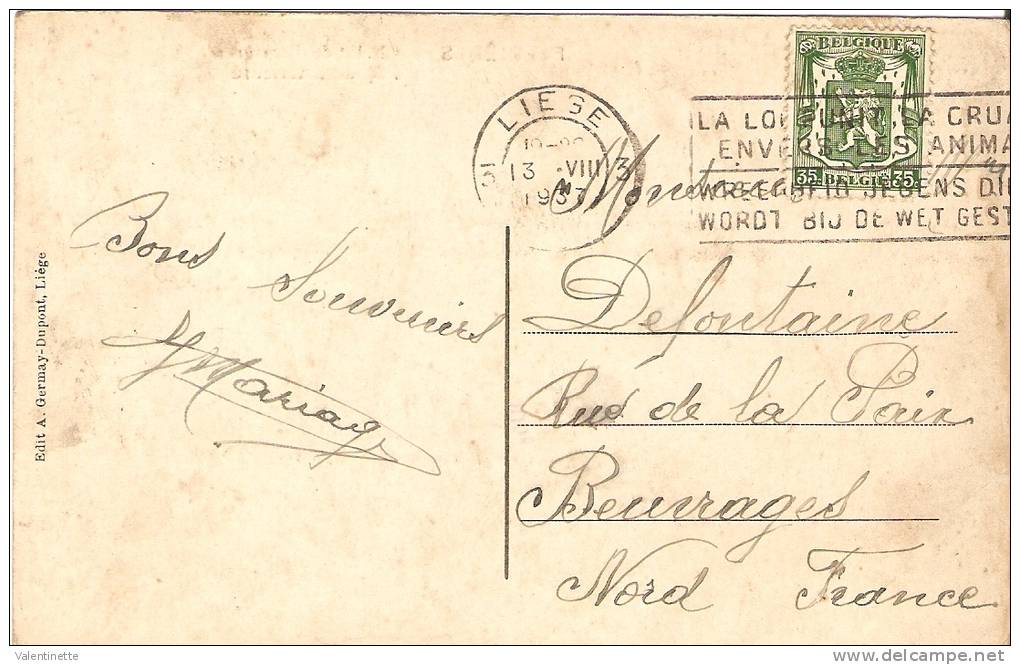 BELGIQUE
35 BELGIE 35
LIEGE
13 VIII
1937
LA LOI PUNIT LA CRUA
ENVERS LES ANIMA
WREEDHEID JEGENS DIE
WORDT BIJ DE WET GEST
Bons
Souvenirs
Mariage
Edit A. Germay-Dupont, Liége
Monsieur
Defontaine
Rue de la Paix
Beuvrages
Nord France
Valentinette
www.delcampe.net